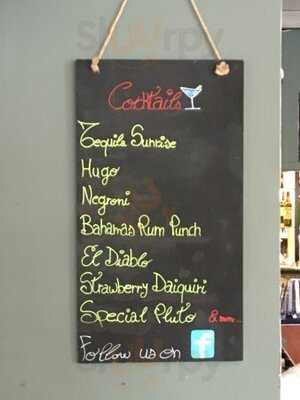 Slurrpy
Cocktails
Tequila Sunrise
Hugo
Negroni
Bahamas Rum Punch
El Diablo
Strawberry Daiquiri
Special Pluto & more...
Follow us on f